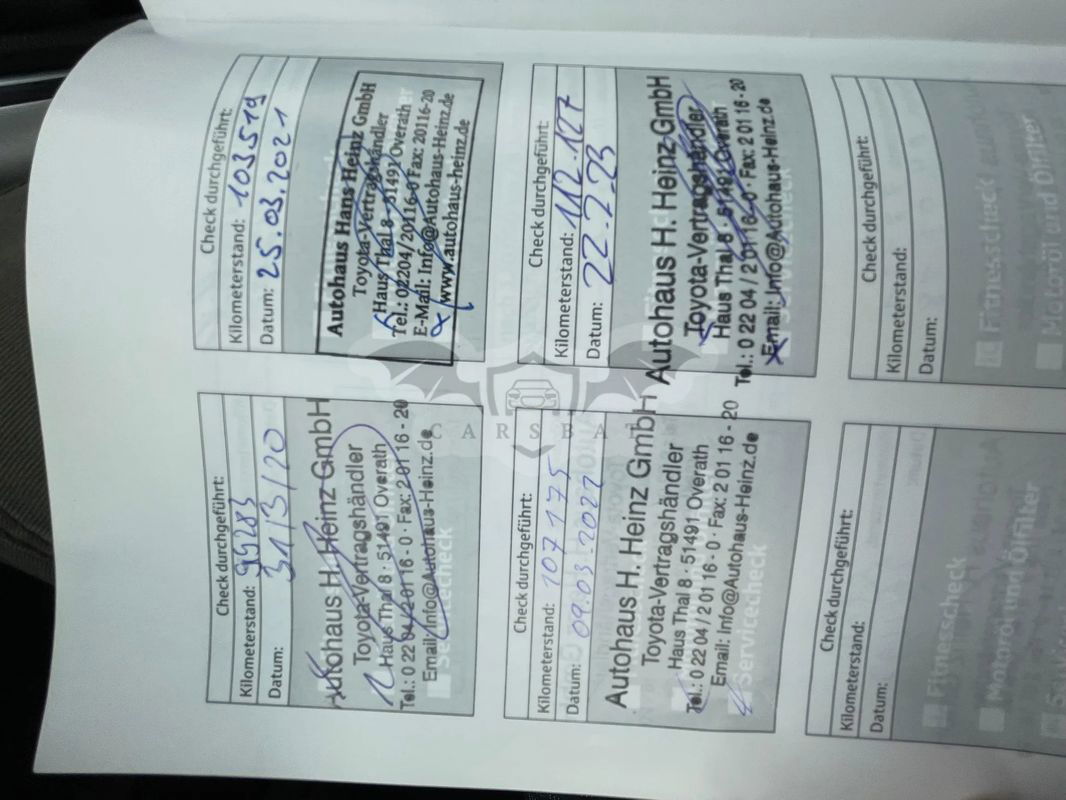 Check durchgeführt:
Kilometerstand: 99283
Datum: 31/3/20
Autohaus H. Heinz GmbH
Toyota-Vertragshändler
Haus Thal 8 · 51491 Overath
Tel.: 0 22 04 / 2 01 16 - 0 · Fax: 2 01 16 - 20
Email: Info@Autohaus-Heinz.de
Servicecheck
Check durchgeführt:
Kilometerstand: 103519
Datum: 25.03.2021
Autohaus Hans Heinz GmbH
Toyota-Vertragshändler
Haus Thal 8 · 51491 Overath
Tel.: 02204/20116-0 Fax: 20116-20
E-Mail: Info@Autohaus-Heinz.de
www.autohaus-heinz.de
Check durchgeführt:
Kilometerstand: 107175
Datum: 09.03.2022
Autohaus H. Heinz GmbH
Toyota-Vertragshändler
Haus Thal 8 · 51491 Overath
Tel.: 0 22 04 / 2 01 16 - 0 · Fax: 2 01 16 - 20
Email: Info@Autohaus-Heinz.de
Servicecheck
Check durchgeführt:
Kilometerstand: 112.127
Datum: 22.2.23
Autohaus H. Heinz GmbH
Toyota-Vertragshändler
Haus Thal 8 · 51491 Overath
Tel.: 0 22 04 / 2 01 16 - 0 · Fax: 2 01 16 - 20
Email: Info@Autohaus-Heinz.de
Servicecheck
Check durchgeführt:
Kilometerstand:
Datum:
Fitnesscheck
Motoröl und Ölfilter
Check durchgeführt:
Kilometerstand:
Datum:
Fitnesscheck
Motoröl und Ölfilter
CARSBAT